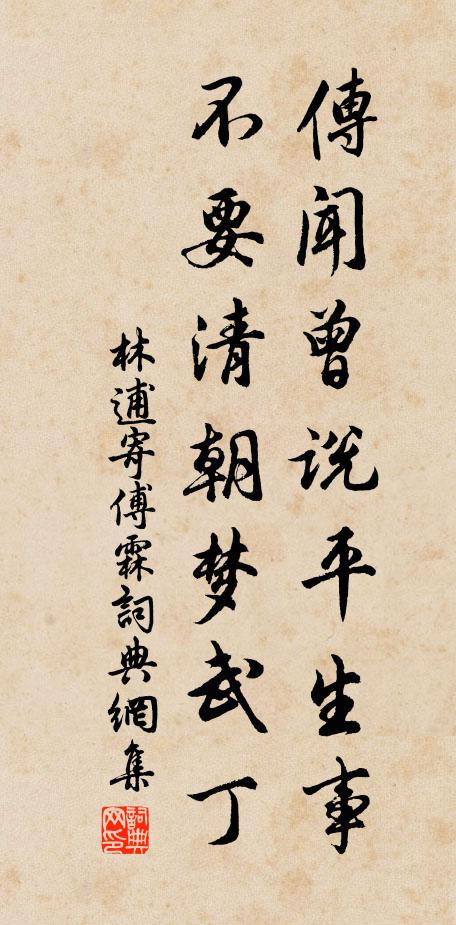 傳闻曾说平生事
不要清朝梦武丁
林逋寄傅霖詞典網集
詞典网印